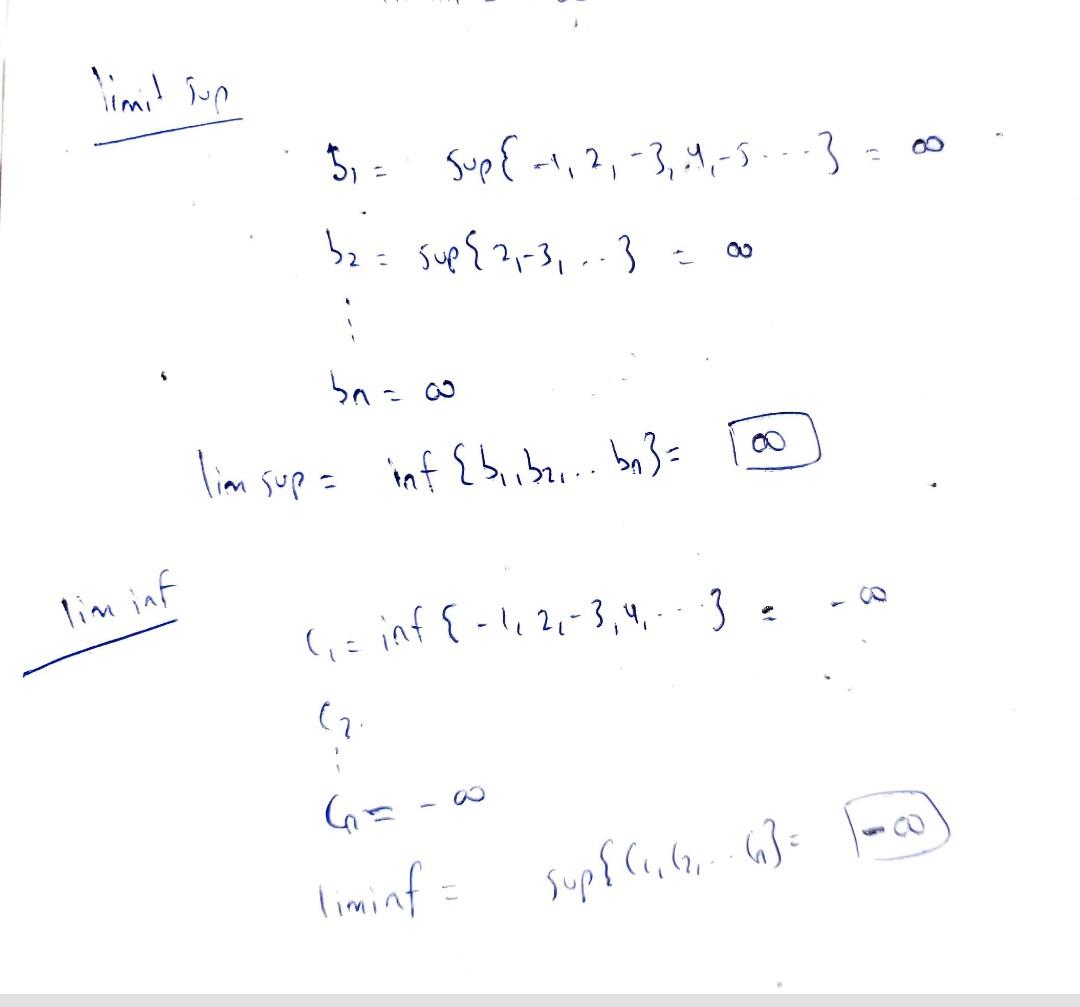 limit sup
b₁ = sup{ -1, 2, -3, 4, -5 ... } = ∞
b₂ = sup{ 2, -3, .. } = ∞
⋮
bn = ∞
lim sup = inf {b₁, b₂, ... bn} = ∞
lim inf
C₁ = inf { -1, 2, -3, 4, ... } = -∞
C₂.
⋮
Cn = -∞
liminf = sup{ C₁, C₂, .. Cn} = -∞